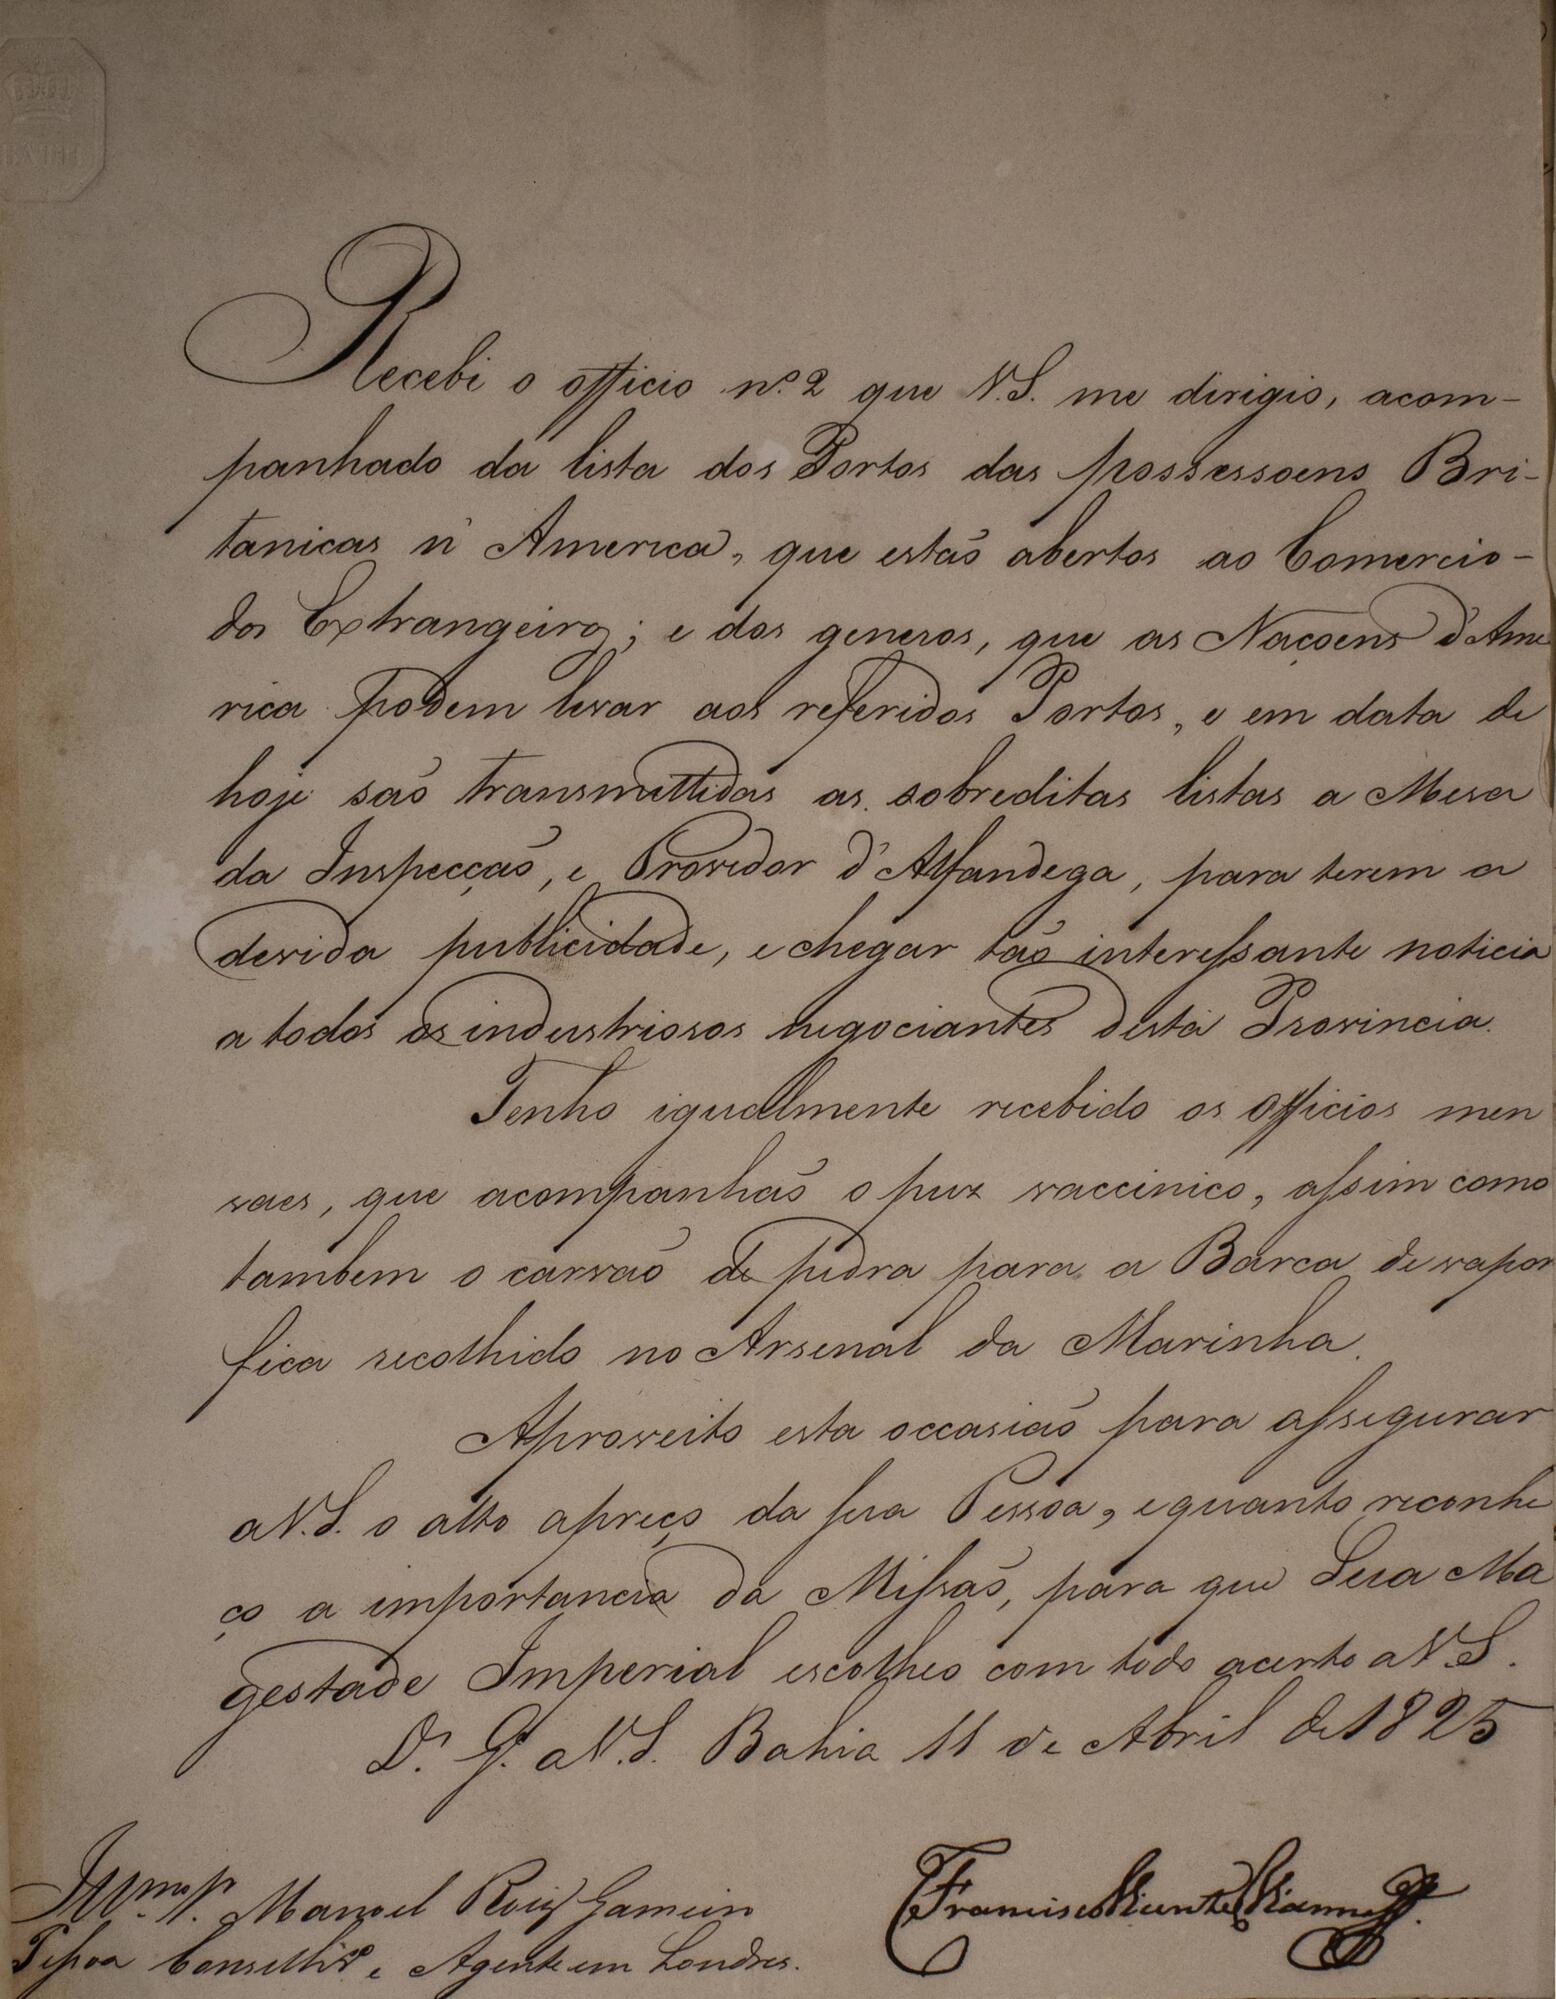 Recebi o officio nº 2 que V.S. me dirigio, acom-
panhado da lista dos Portos das possessoens Bri-
tanicas n'America, que estaõ abertos ao Comercio-
dos Extrangeiros; e dos generos, que as Naçoens d'Ame
rica podem levar aos referidos Portos, e em data de
hoje saõ transmittidas as sobreditas listas a Mesa
da Inspecçaõ, e Provedor d'Alfandega, para terem a
devida publicidade, e chegar taõ interessante noticia
a todos os industriosos negociantes desta Provincia.
Tenho igualmente recebido os Officios men
saes, que acompanhaõ o puz vaccinico, assim como
tambem o carvaõ de pedra para a Barca de vapor
fica recolhido no Arsenal da Marinha.
Aproveito esta occasiaõ para assegurar
a V.S. o alto apreço da sua Pessoa, e quanto reconhe
ço a importancia da Missaõ, para que Sua Ma
gestade Imperial escolheo com todo acerto a V.S.
D. G. a V.S. Bahia 11 de Abril de 1825
Illmo. Sr. Manoel Roiz Gameiro
Pessoa Conselhro. e Agente em Londres.
Francisco Vicente Vianna